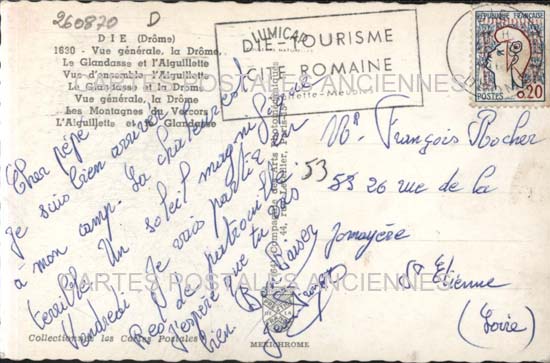 260870 D
DIE (Drôme)
1630 - Vue générale, la Drôme,
Le Glandasse et l'Aiguillette
Vue d'ensemble l'Aiguillette
Le Glandasse et la Drôme
Vue générale, la Drôme
Les Montagnes du Vercors
L'Aiguillette et le Glandasse
LUMICAP
DIE-TOURISME
CITÉ ROMAINE
REPUBLIQUE FRANÇAISE
POSTES
0,20
Cher pépé
je suis bien arrivé
à mon camp. La chaleur est
terrible. Un soleil magnifique
Vendredi je vais partir
J'espère que tu vas
bien. Baiser
Mr. François Rocher
53
53 26 rue de la
Jomayère
St Etienne
(Loire)
Compagnie des Arts Photomécaniques
Collectionnez les Cartes Postales
MEXICHROME
CARTES POSTALES ANCIENNES
CARTES POSTALES ANCIENNES